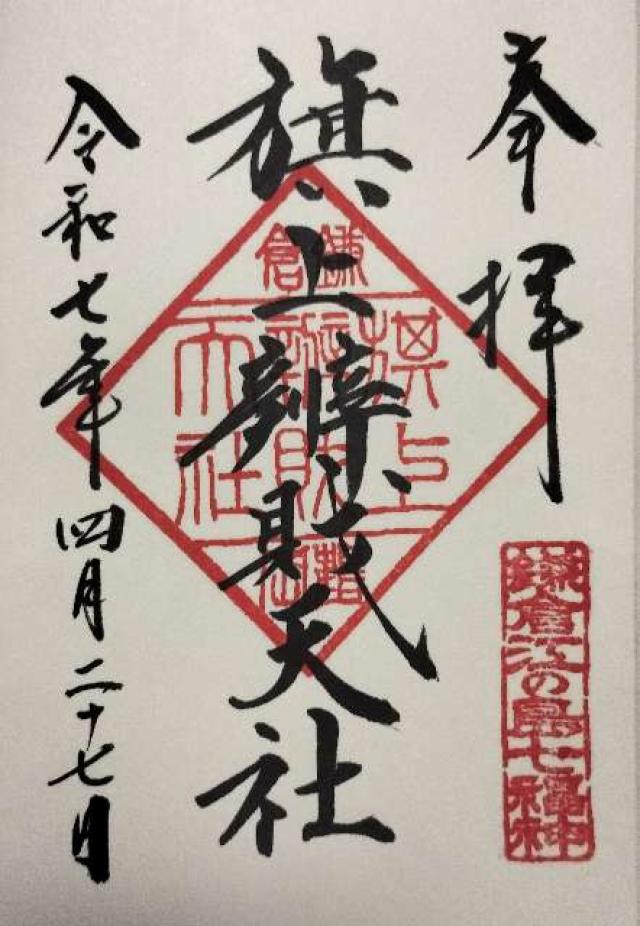 奉拝
鎌倉江の島七福神
旗上辨財天社
鎌倉
旗上
辨財
天社
令和七年四月二十七日